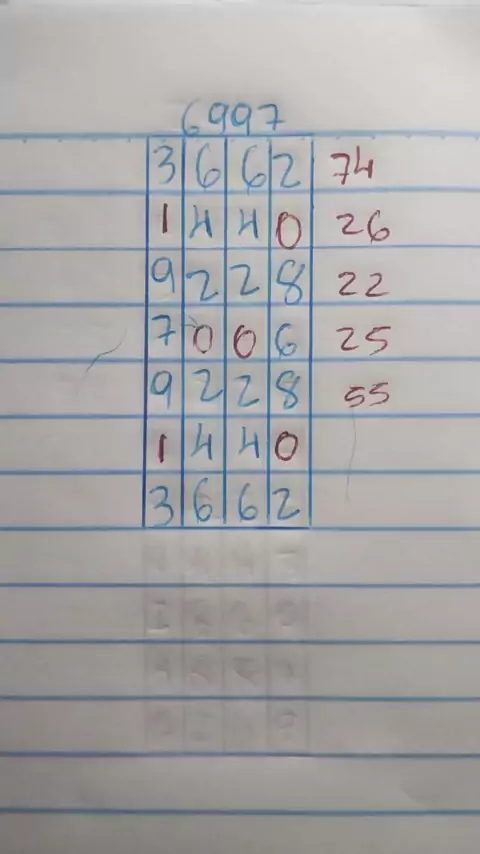 6997
3 6 6 2 74
1 4 4 0 26
9 2 2 8 22
7 0 0 6 25
9 2 2 8 55
1 4 4 0
3 6 6 2